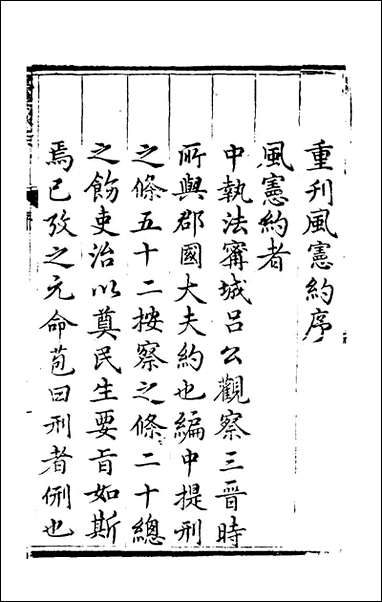 重刊風憲約序
風憲約者
中執法甯城呂公觀察三晉時
所與郡國大夫約也編中提刑
之條五十二按察之條二十總
之飭吏治以奠民生要旨如斯
焉已攷之元命苞曰刑者侀也